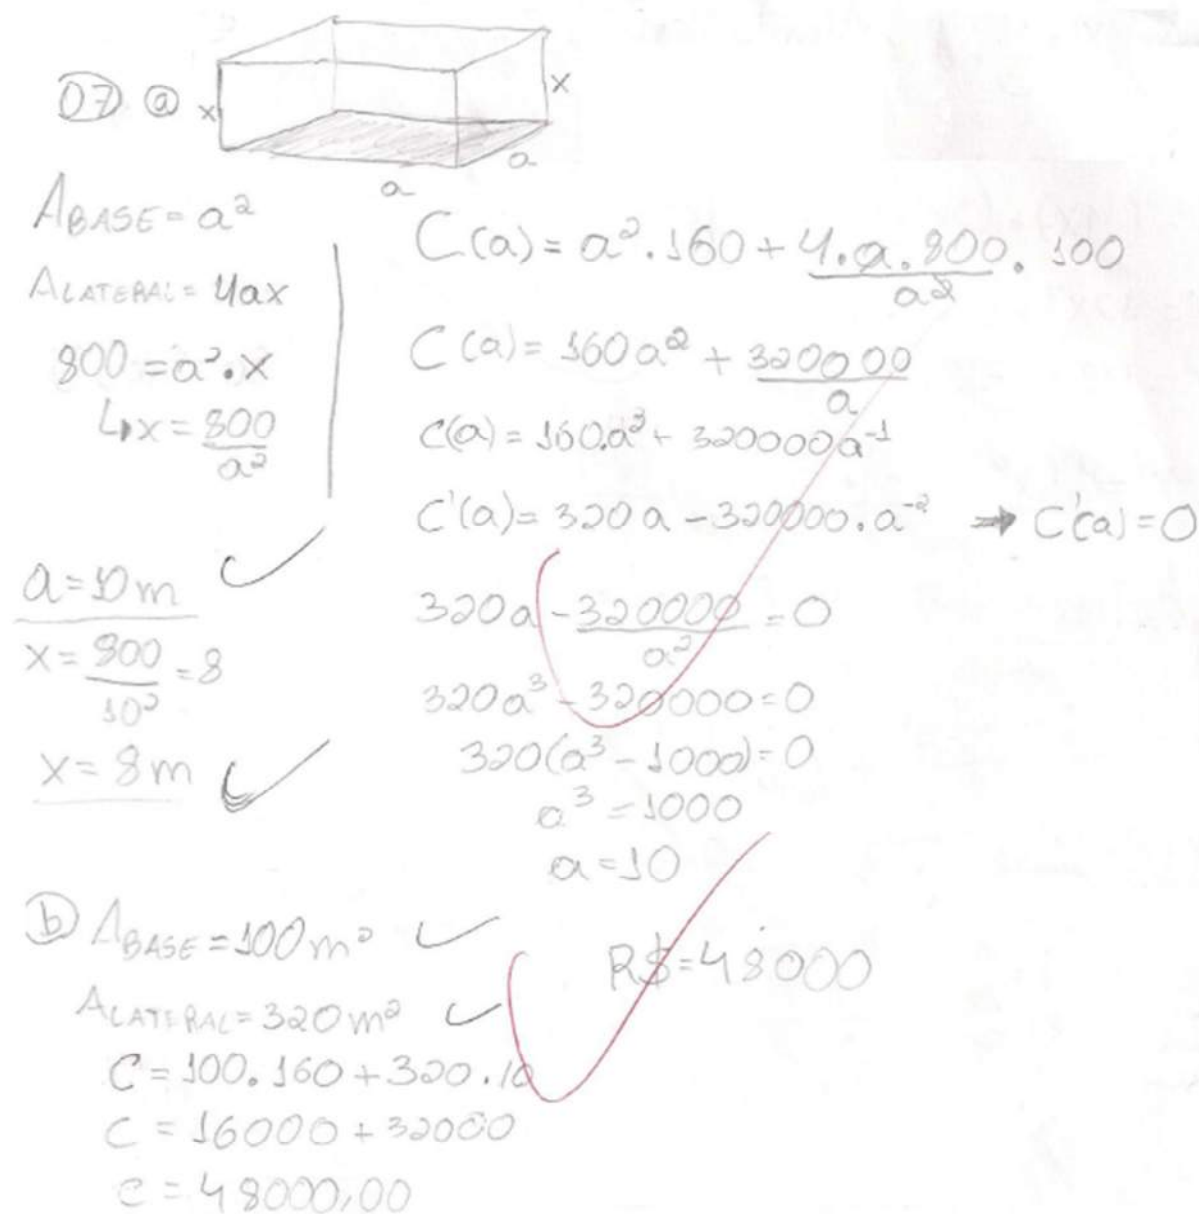 07 a
x
x
a
a
ABASE = a²
ALATERAL = 4ax
800 = a².x
↳ x = 800/a²
a = 10m
x = 800/10² = 8
x = 8m
C(a) = a².160 + 4.a.800/a² . 100
C(a) = 160a² + 320000/a
C(a) = 160.a² + 320000a⁻¹
C'(a) = 320a - 320000.a⁻² ⇒ C'(a) = 0
320a - 320000/a² = 0
320a³ - 320000 = 0
320(a³ - 1000) = 0
a³ = 1000
a = 10
b ABASE = 100m²
ALATERAL = 320m²
C = 100.160 + 320.10
C = 16000 + 32000
C = 48000,00
R$ = 48000